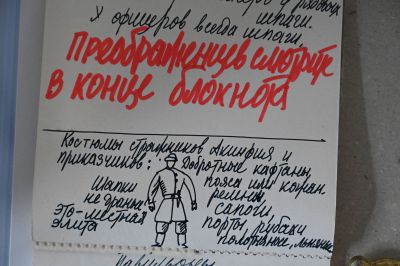 У офицеров всегда шпаги.
шпаги,
Преображенцев смотрите
в конце блокнота
Костюмы стражников Акинфия и
приказчиков: Добротные кафтаны,
Шапки
не драные
Это - местная
элита
пояса или кожан
ремни,
сапоги,
порты, рубахи
полотняные, льняные